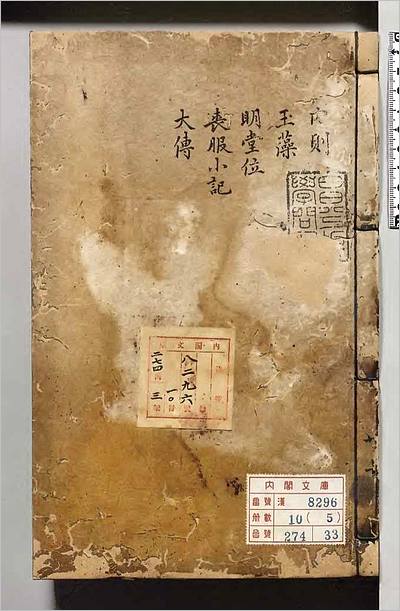 內則
玉藻
明堂位
喪服小記
大傳
內閣文庫
八二九六
一〇
二七四
三
內閣文庫
番號 漢 8296
册數 10(5)
函號 274 33